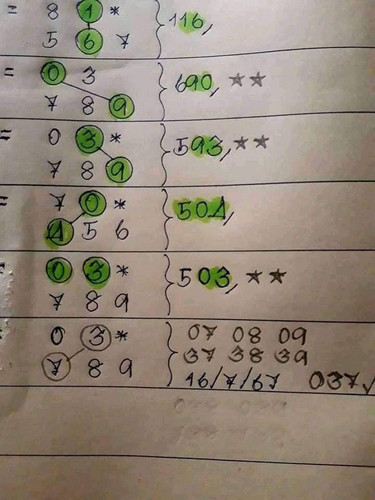 = 8 1 * } 116,
5 6 7
= 0 3 } 690, ☆☆
7 8 9
= 0 3 * } 593, ☆☆
7 8 9
= 7 0 * } 504,
4 5 6
= 0 3 * } 503, ☆☆
7 8 9
0 3 * } 07 08 09
37 38 39
7 8 9 16/7/67 037✓